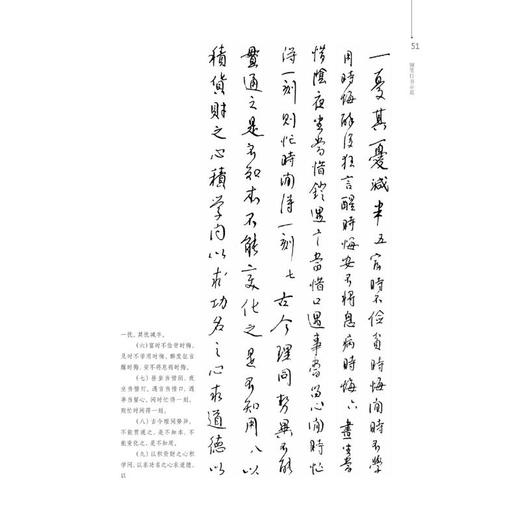 51
钢笔行书
一憂其憂減半五官時不儉貧時悔閒時不學
用時悔醉後狂言醒時悔安不將息病時悔六晝坐當
惜陰夜坐當惜燈遇言當惜口遇事當留心閒時忙
得一刻則忙時閒得一刻七古今理同勢異不能
貫通之是不知本不能變化之是不知用八以
積貨財之心積學問以求功名之心求道德以
一忧，其忧减半。
（六）富时不俭贫时悔，
见时不学用时悔，醉发狂言
醒时悔，安不将息病时悔。
（七）昼坐当惜阴，夜
坐当惜灯，遇言当惜口，遇
事当留心，闲时忙得一刻，
则忙时闲得一刻。
（八）古今理同势异，
不能贯通之，是不知本，不
能变化之，是不知用。
（九）以积货财之心积
学问，以求功名之心求道德，
以